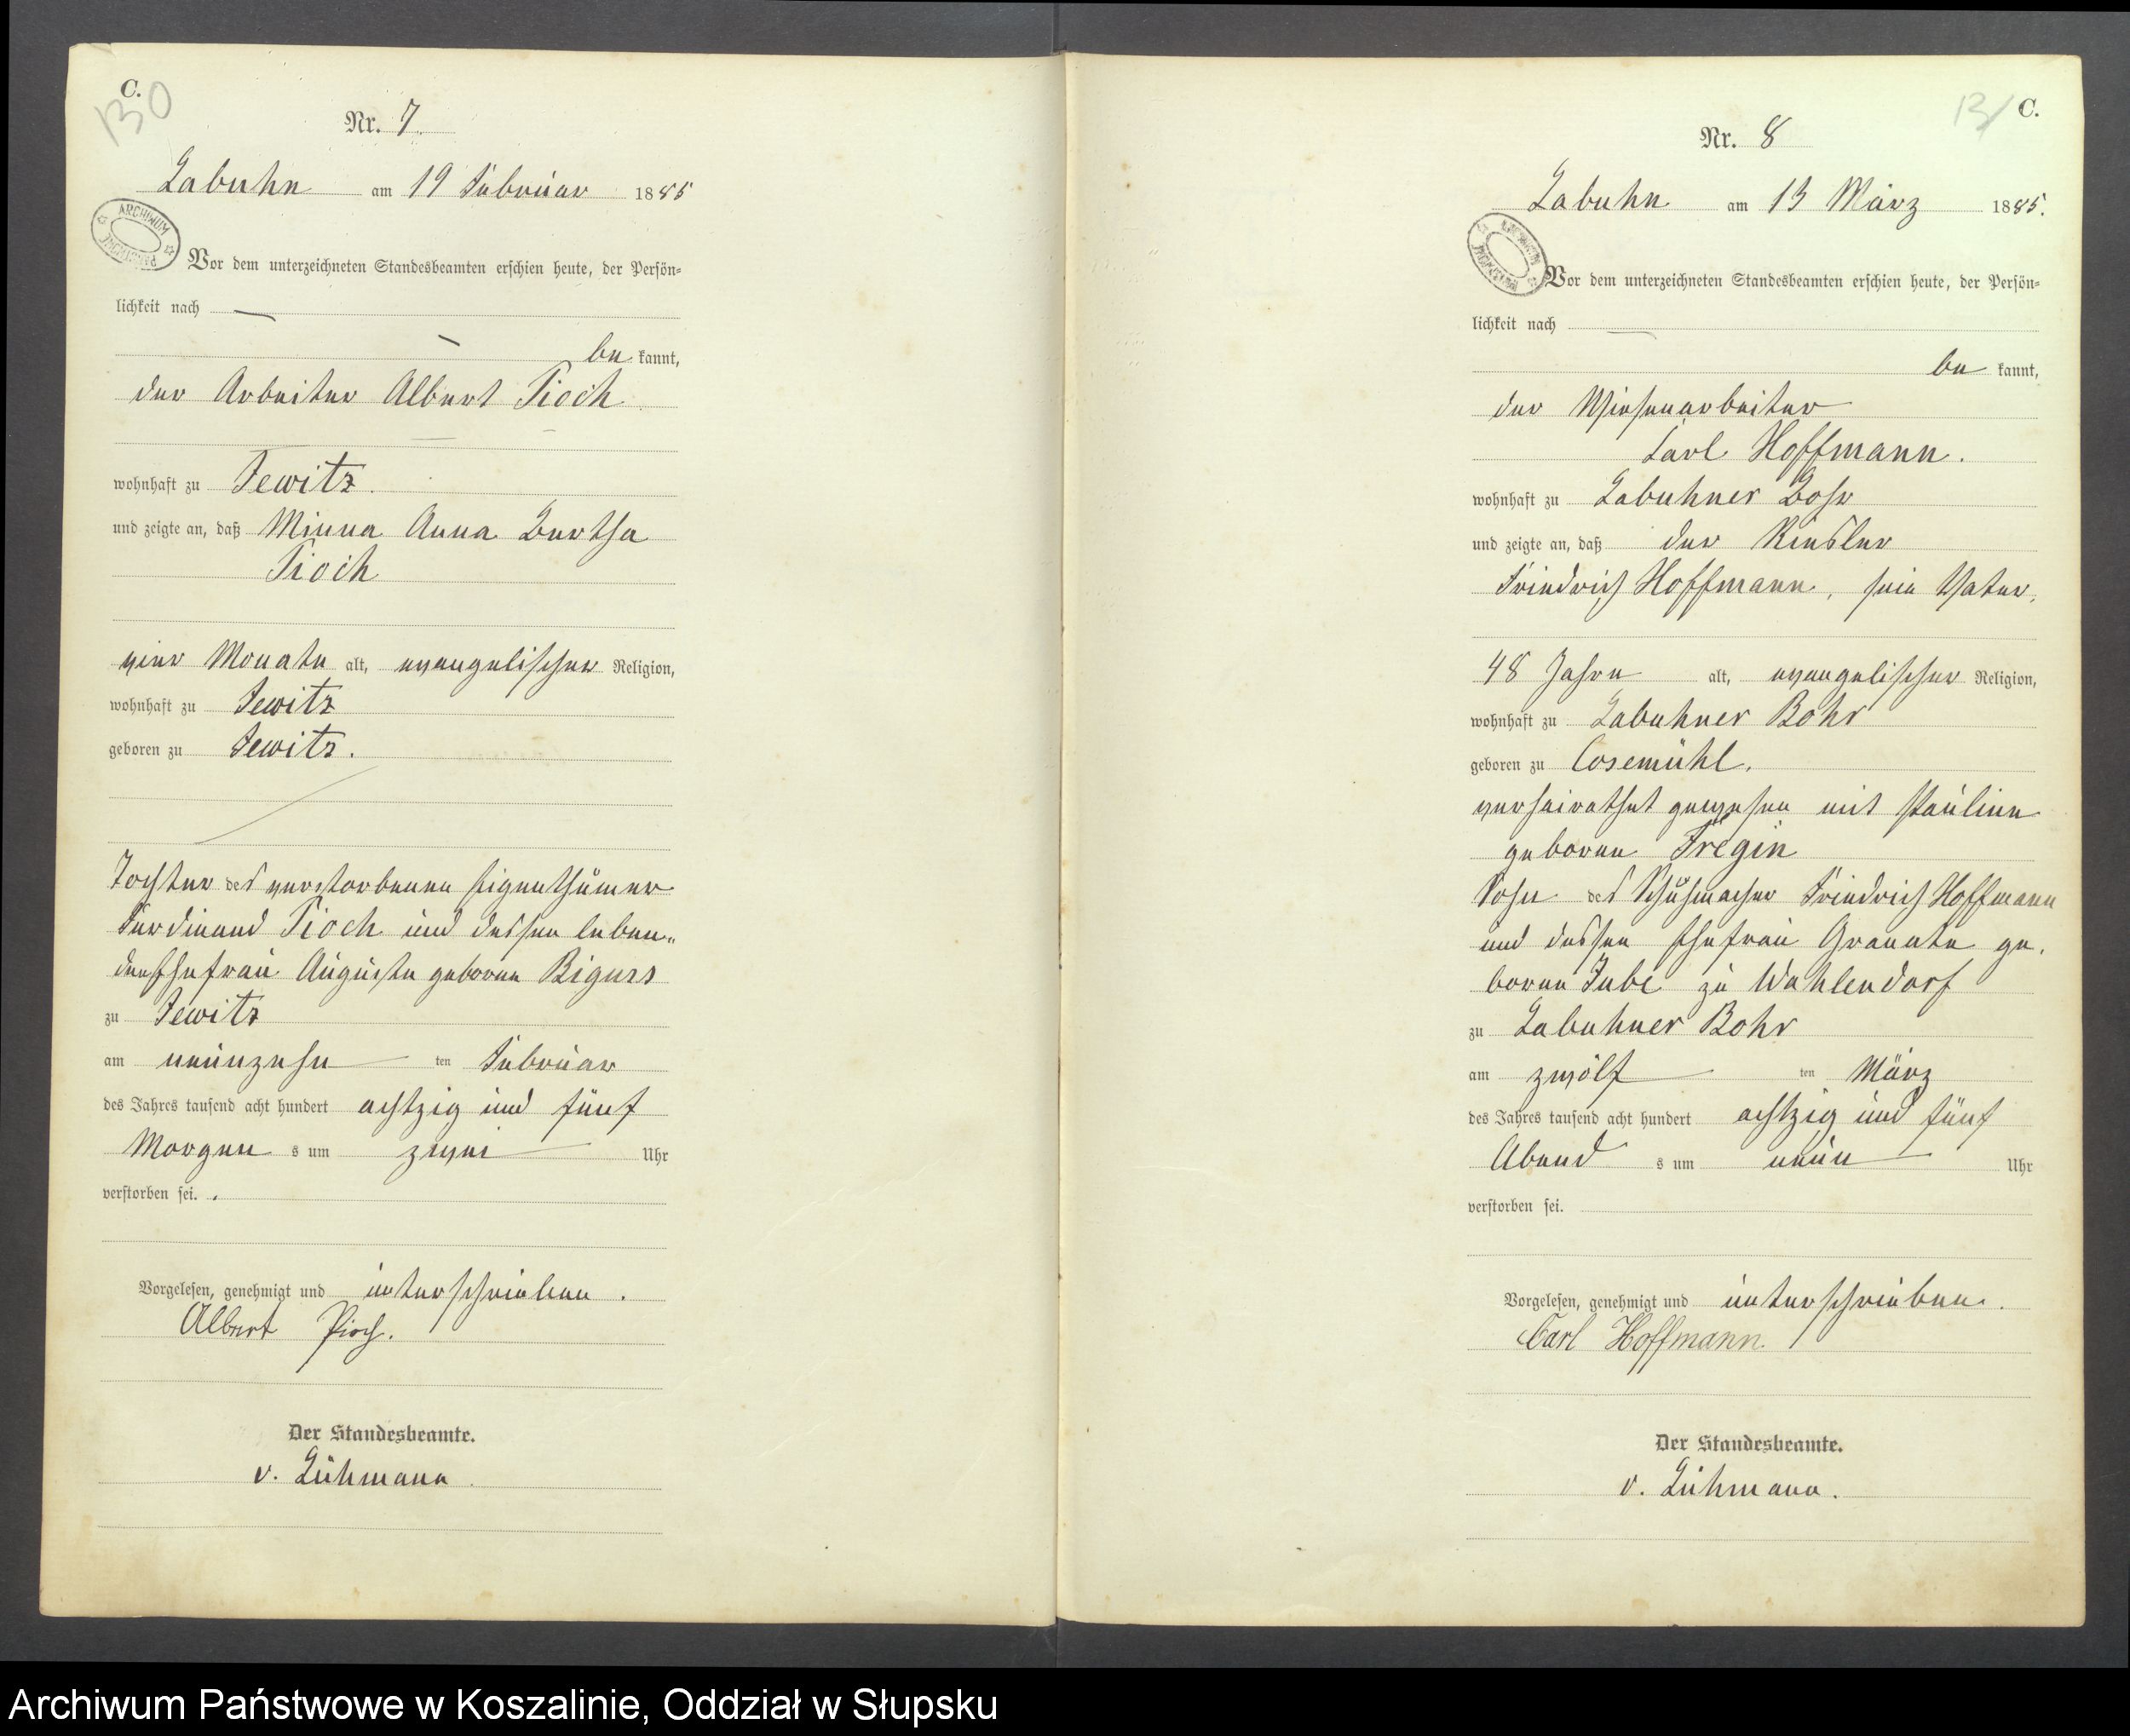 C.
130
Nr. 7.
Labuhn am 19 Februar 1885
ARCHIWUM
Vor dem unterzeichneten Standesbeamten erschien heute, der Persön=
lichkeit nach
be kannt,
der Arbeiter Albert Pioch
wohnhaft zu Jewitz.
und zeigte an, daß Minna Anna Bertha
Pioch
vier Monate alt, evangelischer Religion,
wohnhaft zu Jewitz
geboren zu Jewitz.
Tochter des verstorbenen Eigenthümer
Ferdinand Pioch und dessen leben„
den Ehefrau Auguste geborne Bigurs
zu Jewitz
am neunzehn ten Februar
des Jahres tausend acht hundert achtzig und fünf
Morgen s um zwei Uhr
verstorben sei.
Vorgelesen, genehmigt und unterschrieben.
Albert Pioch.
Der Standesbeamte.
v. Lühmann
131
C.
Nr. 8
Labuhn am 13 März 1885.
Vor dem unterzeichneten Standesbeamten erschien heute, der Persön=
lichkeit nach
be kannt,
der Wiesenarbeiter
Carl Hoffmann.
wohnhaft zu Labuhner Bohr
und zeigte an, daß der
Friedrich Hoffmann, sein Vater,
48 Jahre alt, evangelischer Religion,
wohnhaft zu Labuhner Bohr
geboren zu Cosemühl.
verheirathet gewesen mit Pauline
geborne Fregin
Sohn des Schuhmacher Friedrich Hoffmann
und dessen Ehefrau ge.
borne zu Wahlendorf
zu Labuhner Bohr
am zwölf ten März
des Jahres tausend acht hundert achtzig und fünf
Abend s um neun Uhr
verstorben sei.
Vorgelesen, genehmigt und unterschrieben.
Carl Hoffmann.
Der Standesbeamte.
v. Lühmann.
Archiwum Państwowe w Koszalinie, Oddział w Słupsku